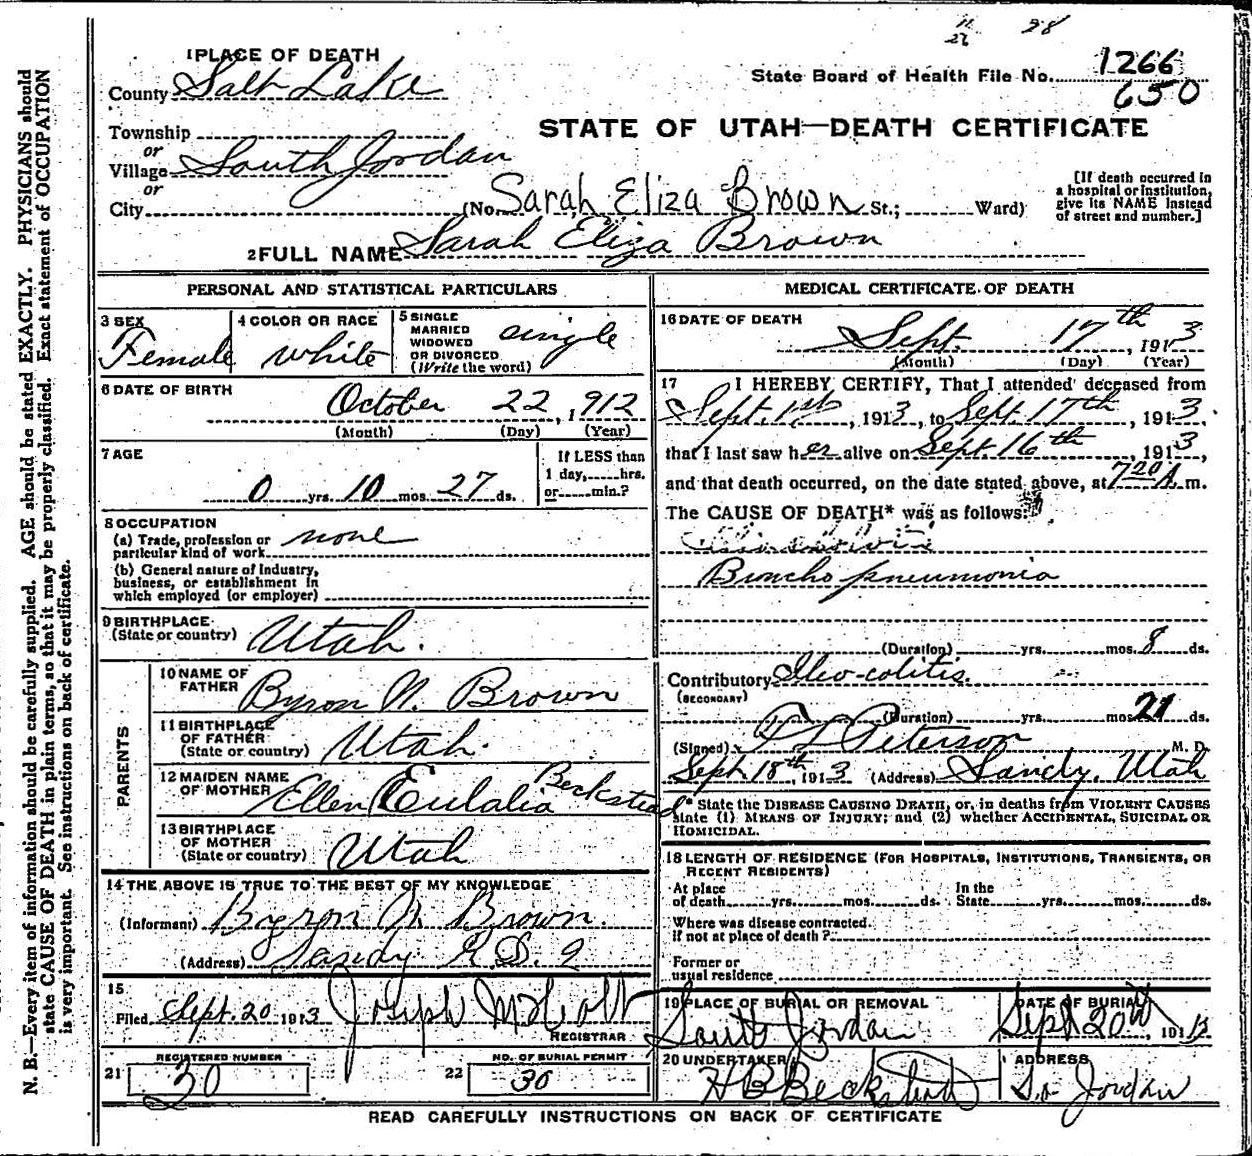 11 28
26
1 PLACE OF DEATH
State Board of Health File No. 1266
650
County Salt Lake
STATE OF UTAH—DEATH CERTIFICATE
Township
or
Village South Jordan
or
City (No. Sarah Eliza Brown St.; Ward)
[If death occurred in
a hospital or institution,
give its NAME instead
of street and number.]
2 FULL NAME Sarah Eliza Brown
PERSONAL AND STATISTICAL PARTICULARS
3 SEX
Female
4 COLOR OR RACE
white
5 SINGLE
MARRIED
WIDOWED
OR DIVORCED
(Write the word)
single
6 DATE OF BIRTH
October 22, 1912
(Month) (Day) (Year)
7 AGE
0 yrs. 10 mos. 27 ds.
If LESS than
1 day,......hrs.
or......min.?
8 OCCUPATION
(a) Trade, profession or
particular kind of work none
(b) General nature of Industry,
business, or establishment in
which employed (or employer)
9 BIRTHPLACE
(State or country) Utah.
PARENTS
10 NAME OF
FATHER Byron N. Brown
11 BIRTHPLACE
OF FATHER
(State or country) Utah.
12 MAIDEN NAME
OF MOTHER Ellen Eulalia Beckstead
13 BIRTHPLACE
OF MOTHER
(State or country) Utah
14 THE ABOVE IS TRUE TO THE BEST OF MY KNOWLEDGE
(Informant) Byron N. Brown.
(Address) Sandy R.D. 2
15
Filed Sept. 20 1913 Joseph M Holt
REGISTRAR
21 REGISTERED NUMBER
30
22 NO. OF BURIAL PERMIT
30
MEDICAL CERTIFICATE OF DEATH
16 DATE OF DEATH
Sept. 17th, 1913
(Month) (Day) (Year)
17 I HEREBY CERTIFY, That I attended deceased from
Sept. 1st, 1913, to Sept. 17th, 1913.
that I last saw her alive on Sept. 16th, 1913,
and that death occurred, on the date stated above, at 7 20 A m.
The CAUSE OF DEATH* was as follows:
Broncho pneumonia
(Duration) yrs. mos. 8 ds.
Contributory Ileo-colitis.
(SECONDARY)
(Duration) yrs. mos. 21 ds.
(Signed) Peterson M. D.
Sept 18th, 1913 (Address) Sandy, Utah
* State the DISEASE CAUSING DEATH, or, in deaths from VIOLENT CAUSES
state (1) MEANS OF INJURY; and (2) whether ACCIDENTAL, SUICIDAL OR
HOMICIDAL.
18 LENGTH OF RESIDENCE (FOR HOSPITALS, INSTITUTIONS, TRANSIENTS, OR
RECENT RESIDENTS)
At place
of death......yrs......mos......ds.
In the
State......yrs......mos......ds.
Where was disease contracted.
if not at place of death?
Former or
usual residence
19 PLACE OF BURIAL OR REMOVAL
South Jordan
DATE OF BURIAL
Sept 20th, 1913
20 UNDERTAKER
H B Beckstead
ADDRESS
So Jordan
READ CAREFULLY INSTRUCTIONS ON BACK OF CERTIFICATE
N. B.—Every item of information should be carefully supplied. AGE should be stated EXACTLY. PHYSICIANS should
state CAUSE OF DEATH in plain terms, so that it may be properly classified. Exact statement of OCCUPATION
is very important. See instructions on back of certificate.